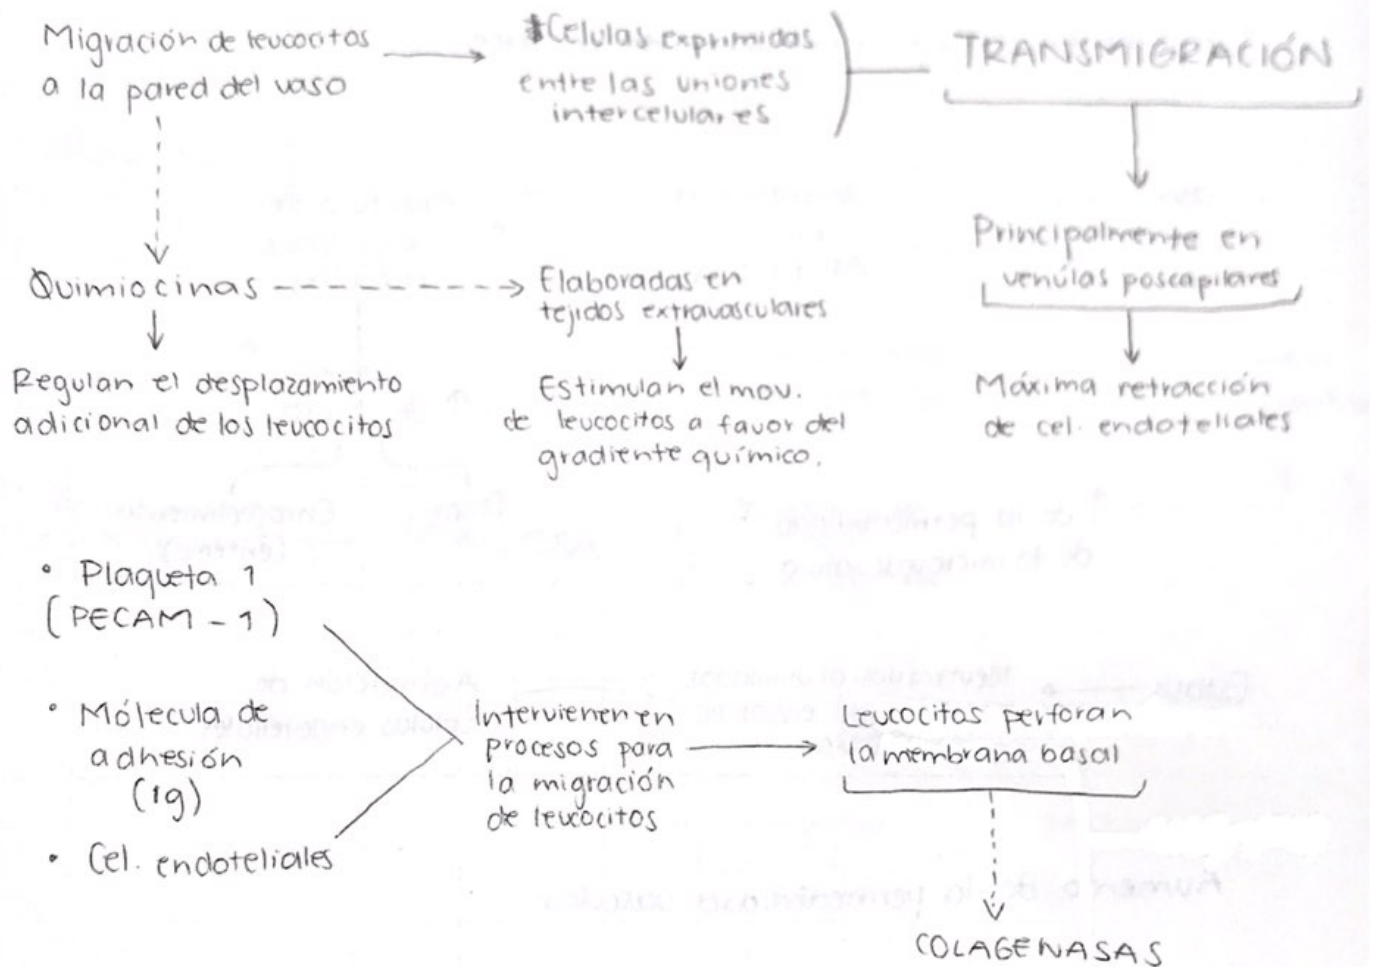 Migración de leucocitos
a la pared del vaso
Celulas exprimidas
entre las uniones
intercelulares
TRANSMIGRACIÓN
Principalmente en
venúlas poscapilares
Máxima retracción
de cel. endoteliales
Quimiocinas
Elaboradas en
tejidos extravasculares
Regulan el desplazamiento
adicional de los leucocitos
Estimulan el mov.
de leucocitos a favor del
gradiente químico.
• Plaqueta 1
(PECAM-1)
• Mólecula de
adhesión
(Ig)
• Cel. endoteliales
Intervienen en
procesos para
la migración
de leucocitos
Leucocitos perforan
la membrana basal
COLAGENASAS